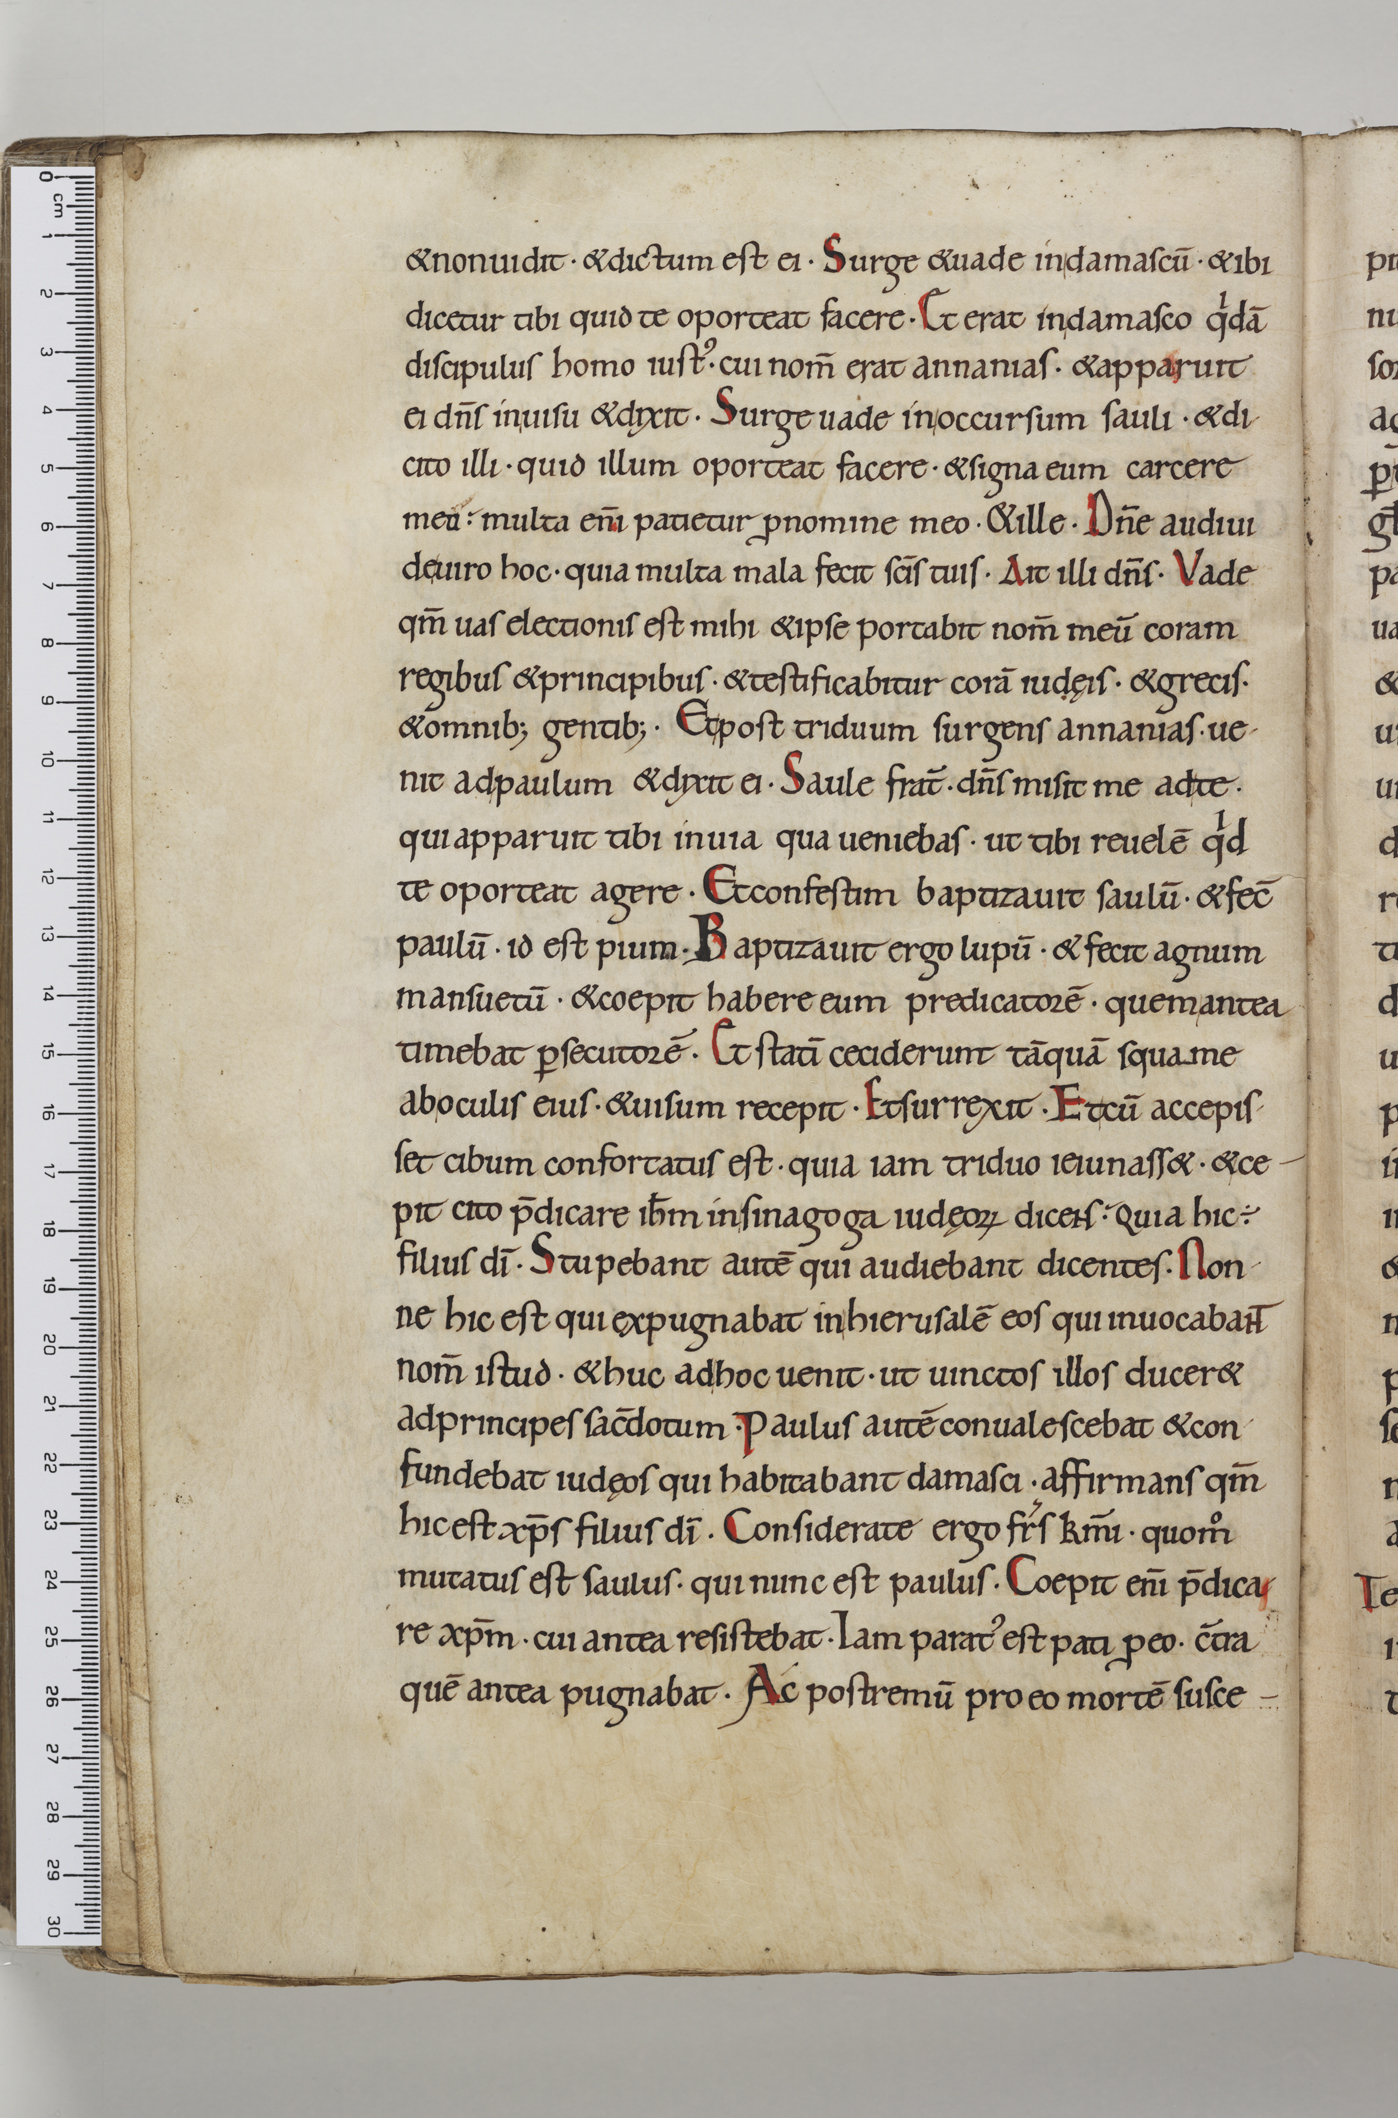 &nonuidit · &dictum est ei · Surge &uade indamascū · &ibi
dicetur tibi quid te oporteat facere · Et erat indamasco qͥdā
discipulus homo iustꝰ · cui nom̄ erat annanias · &apparuit
ei dn̄s inuisu &dixit · Surge uade inoccursum sauli · &di-
cito illi · quid illum oporteat facere · &signa eum carcere
meū : multa eni̅ patietur ꝓnomine meo · &ille · Dn̄e audiui
deuiro hoc · quia multa mala fecit sc̄is tuis · Ait illi dn̄s · Vade
qm̄ uas electionis est mihi &ipse portabit nom̄ meū coram
regibus &principibus · &testificabitur corā iudęis · &grecis ·
&omnib; gentib; · Etpost triduum surgens annanias · ue-
nit adpaulum &dixit ei · Saule frat̄ · dn̄s misit me adte ·
qui apparuit tibi inuia qua ueniebas · ut tibi reuelē qͥd
te oporteat agere · Etconfestim baptizauit saulū · &fec̄
paulū · id est pium · Baptizauit ergo lupū · & fecit agnum
mansuetū · &coepit habere eum predicatorē · quemantea
timebat ꝑsecutorē · Et statī ceciderunt tāquā squame
aboculis eius · &uisum recepit · Etsurrexit · Etcū accepis-
set cibum confortatus est · quia iam triduo ieiunass& · &ce-
pit cito p̄dicare ih̄m insinagoga iudęoꝝ dicens : Quia hic ÷
filius dī · Stupebant autē qui audiebant dicentes · Non-
ne hic est qui expugnabat inhierusalē eos qui inuocabant̄
nom̄ istud · &huc adhoc uenit · ut uinctos illos ducer&
adprincipes sac̄dotum · Paulus autē conualescebat &con-
fundebat iudęos qui habitabant damasci · affirmans qm̄
hic est xp̄s filius dī · Considerate ergo fr̄s km̄i · quom̊
mutatus est saulus · qui nunc est paulus · Coepit eni̅ p̄dica-
re xp̄m · cui antea resistebat · Iam paratꝰ est pati ꝓeo · c̄tra
quē antea pugnabat · Ac postremū pro eo mortē susce-